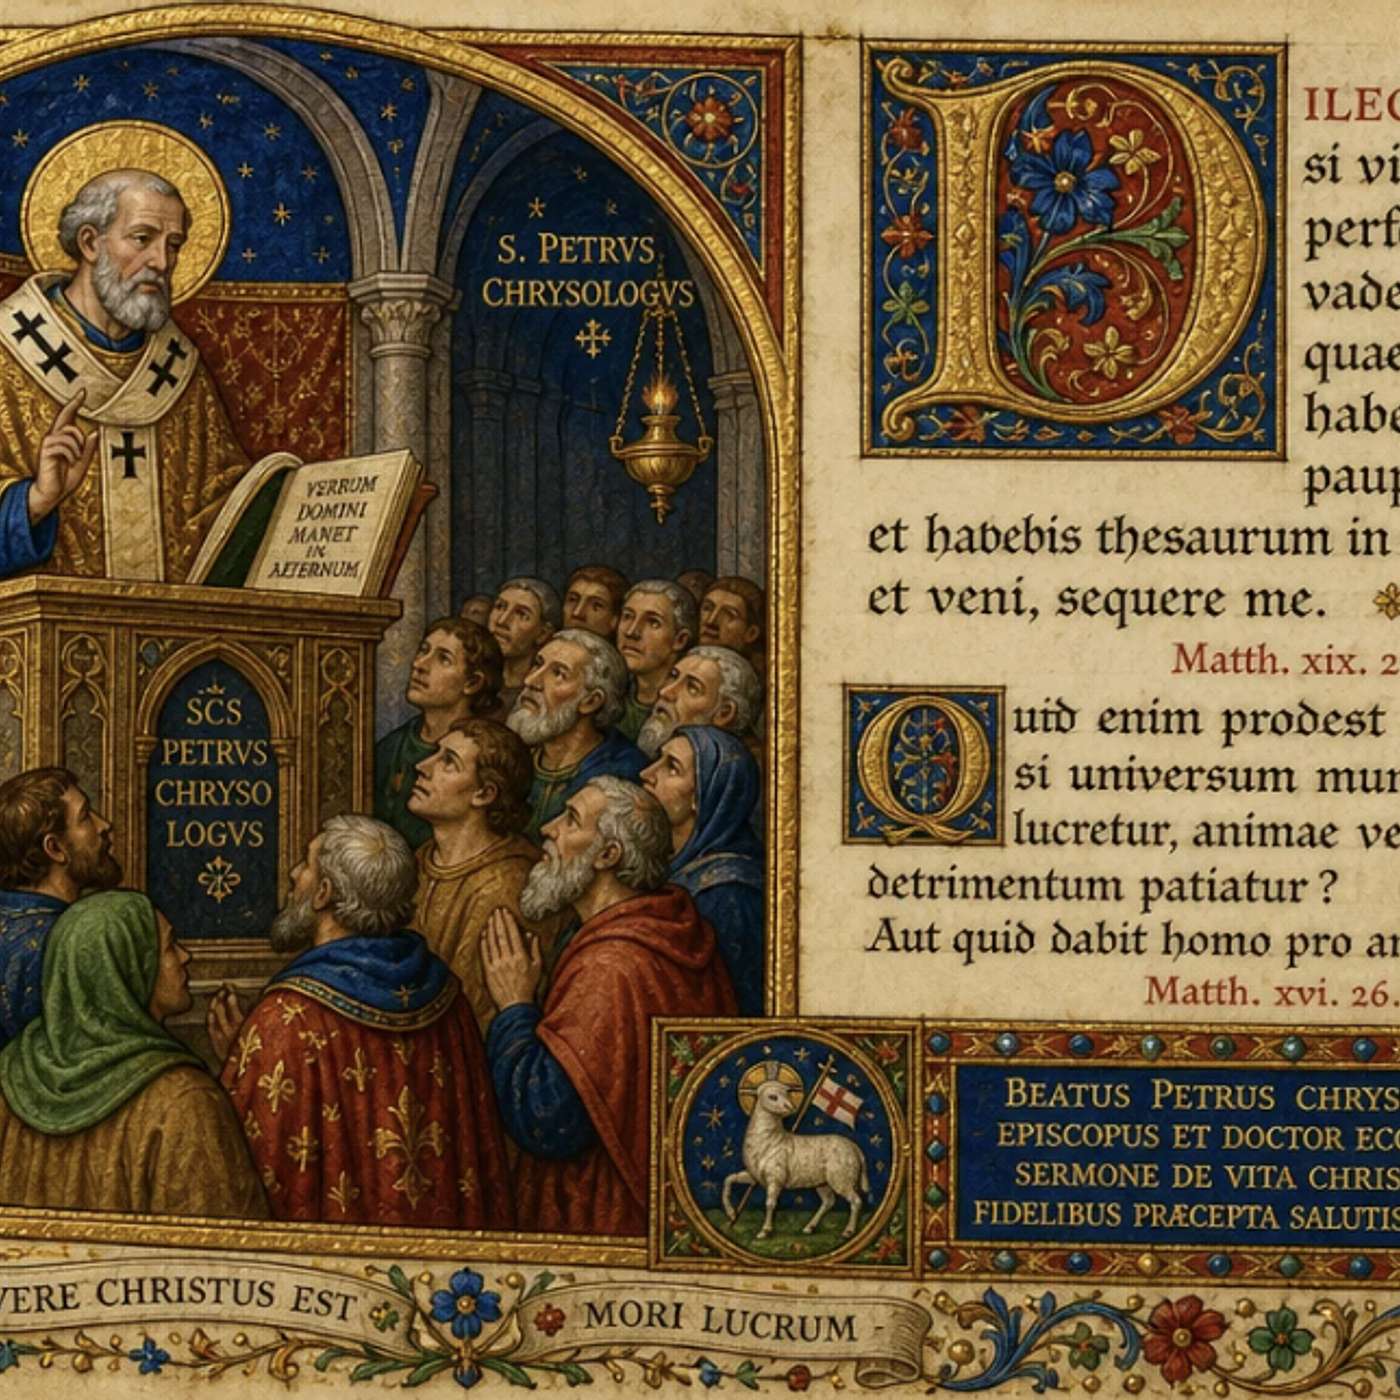 S. PETRVS
CHRYSOLOGVS
VERBUM
DOMINI
MANET
IN
AETERNUM,
SC̄S
PETRVS
CHRYSO
LOGVS
DILEC
si vi
perfe
vade
quae
habe
paup
et habebis thesaurum in
et veni, sequere me.
Matth. xix. 2
Quid enim prodest
si universum mun
lucretur, animae ve
detrimentum patiatur?
Aut quid dabit homo pro an
Matth. xvi. 26.
BEATUS PETRUS CHRYS
EPISCOPUS ET DOCTOR EC
SERMONE DE VITA CHRIS
FIDELIBUS PRÆCEPTA SALUTIS
VERE CHRISTUS EST
MORI LUCRUM -